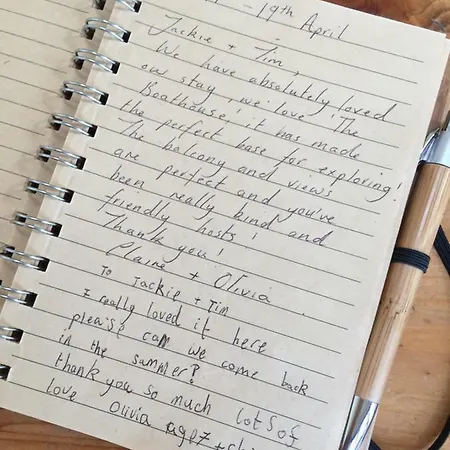 - 19th April
Jackie + Tim,
We have absolutely loved
our stay, we love 'The
Boathouse', it has made
the perfect base for exploring!
The balcony and views
are perfect and you've
been really kind and
friendly hosts!
Thank you!
Claire + Olivia
To Jackie + Tim
I really loved it here
please can we come back
in the summer?
thank you so much lots of
love Olivia age 7